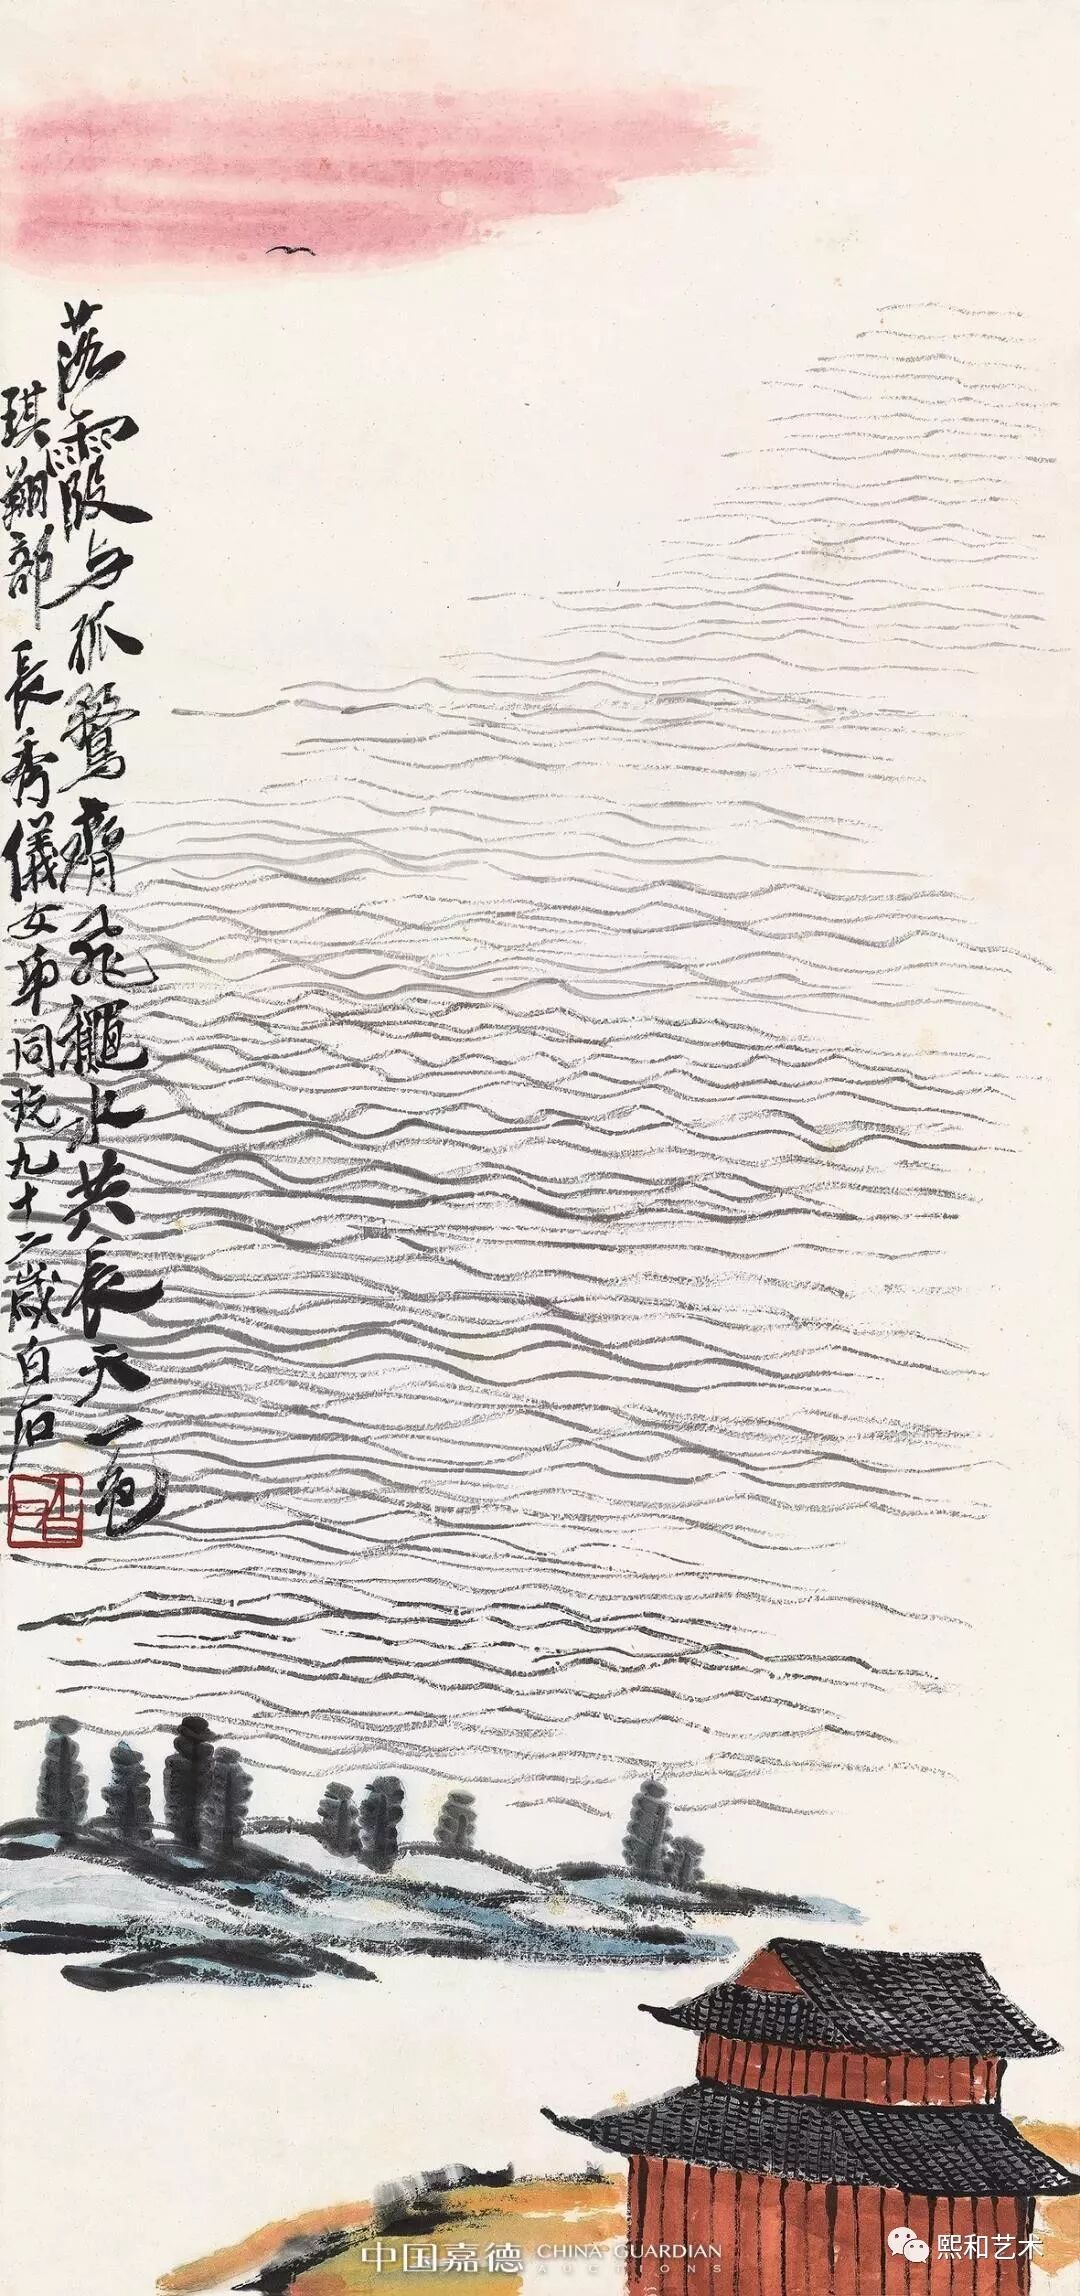 落霞与孤鶩齊飛龝水共長天一色
琪翔部長秀儀女弟同玩九十二歲白石
白石
中国嘉德 CHINA GUARDIAN
AUCTIONS
熙和艺术